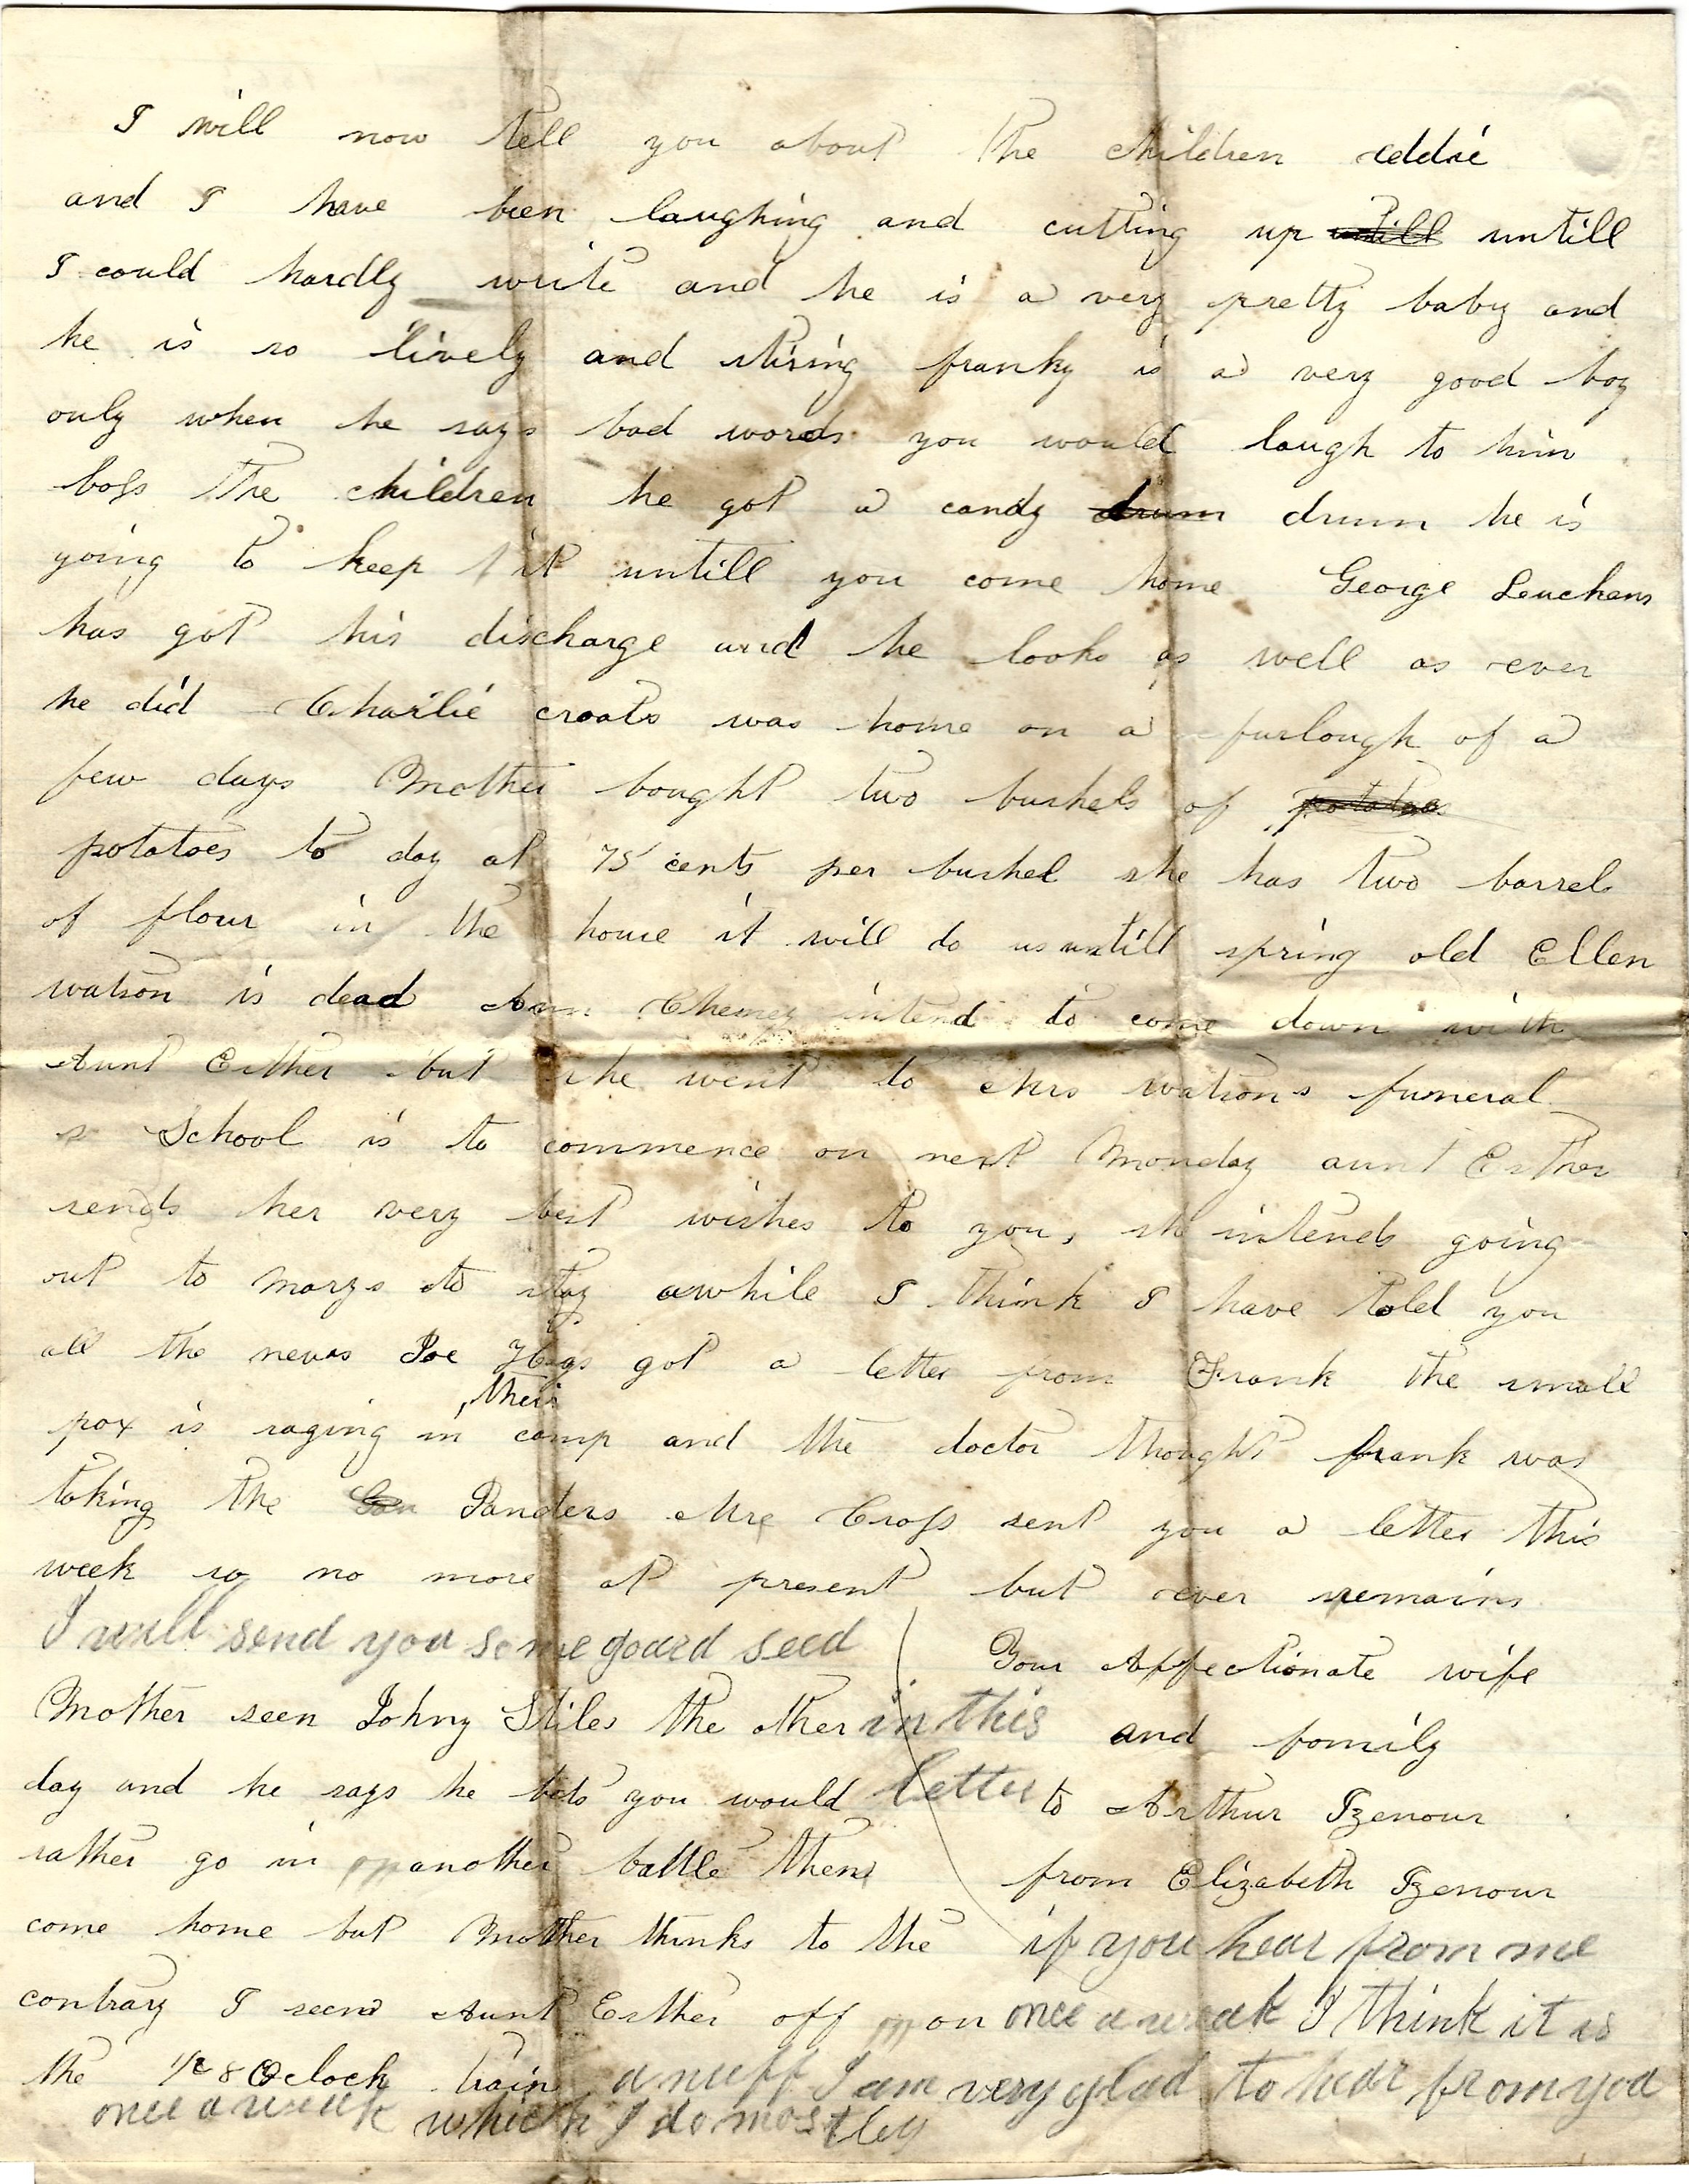 I will now tell you about the children eddie
and I have been laughing and cutting up untill untill
I could hardly write and he is a very pretty baby and
he is so lively and stiring franky is a very good boy
only when he says bad words you would laugh to him
boss the children he got a candy drum drum he is
going to keep it untill you come home George Leuchens
has got his discharge and he looks as well as ever
he did Charlie croats was home on a furlough of a
few days Mother bought two bushels of potatoes
potatoes to day at 75 cents per bushel she has two barrels
of flour in the house it will do us untill spring old Ellen
watson is dead Ann Cheney intend to come down with
Aunt Esther but she went to Mrs watsons funeral
School is to commence on next Monday aunt Esther
sends her very best wishes to you, sh intends going
out to marys to stay awhile I think I have told you
all the news Joe got a letter from Frank the small
pox is raging in their camp and the doctor thought frank was
taking the Janders Mrs Cross sent you a letter this
week so no more at present but ever remains
Your Affectionate wife
and family
to Arthur Izenour
from Elizabeth Izenour
I will send you some goard seed
in this
letter
Mother seen Johny Stiles the other
day and he says he bets you would
rather go in another battle then
come home but Mother thinks to the
contrary I seen Aunt Esther off on
the 1/2 8 Oclock train
if you hear from me
once a weak I think it is
a nuff I am very glad to hear from you
once a week which I do mostley